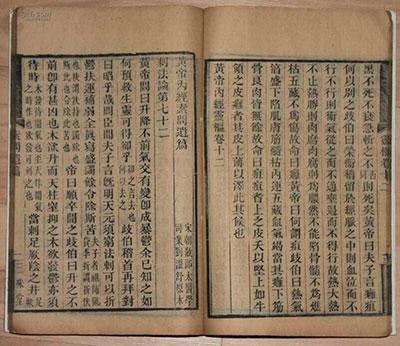 黑不死不衰急斬之不則死矣黃帝曰夫子言癰疽
何以別之歧伯曰營衛稽留於經脈之中則血泣而不
行不行則衛氣從之而不通壅遏而不得行故熱大熱
不止熱勝則肉腐肉腐則為膿然不能陷骨髓不為燋
枯五藏不為傷故命曰癰黃帝曰何謂疽歧伯曰熱氣
淳盛下陷肌膚筋髓枯內連五藏血氣竭當其癰下筋
骨良肉皆無餘故命曰疽疽者上之皮夭以堅上如牛
領之皮癰者其皮上薄以澤此其候也
黃帝內經靈樞卷十二
黃帝內經素問遺篇
宋朝散郎太醫學
司業劉溫舒原本
刺法論第七十二
黃帝問曰升降不前氣交有變即成暴鬱余已知之如
何預救生靈可得卻乎歧伯稽首再拜對
曰昭乎哉問臣聞夫子言既明天元須窮法刺可以折
鬱扶運補弱全真瀉盛蠲餘令除斯苦
帝曰願卒聞之歧伯曰升之不
前即有甚凶也木欲升而天柱窒抑之木欲發鬱亦須
待時當刺足厥陰之井